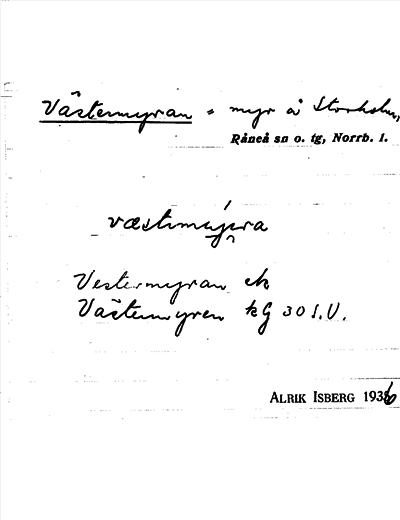 Västermyran = myr å Storholm,
Råneå sn o. tg, Norrb. l.
væstmy̆ra
Vestermyran ek
Västermyren kG 30 S.V.
ALRIK ISBERG 1936